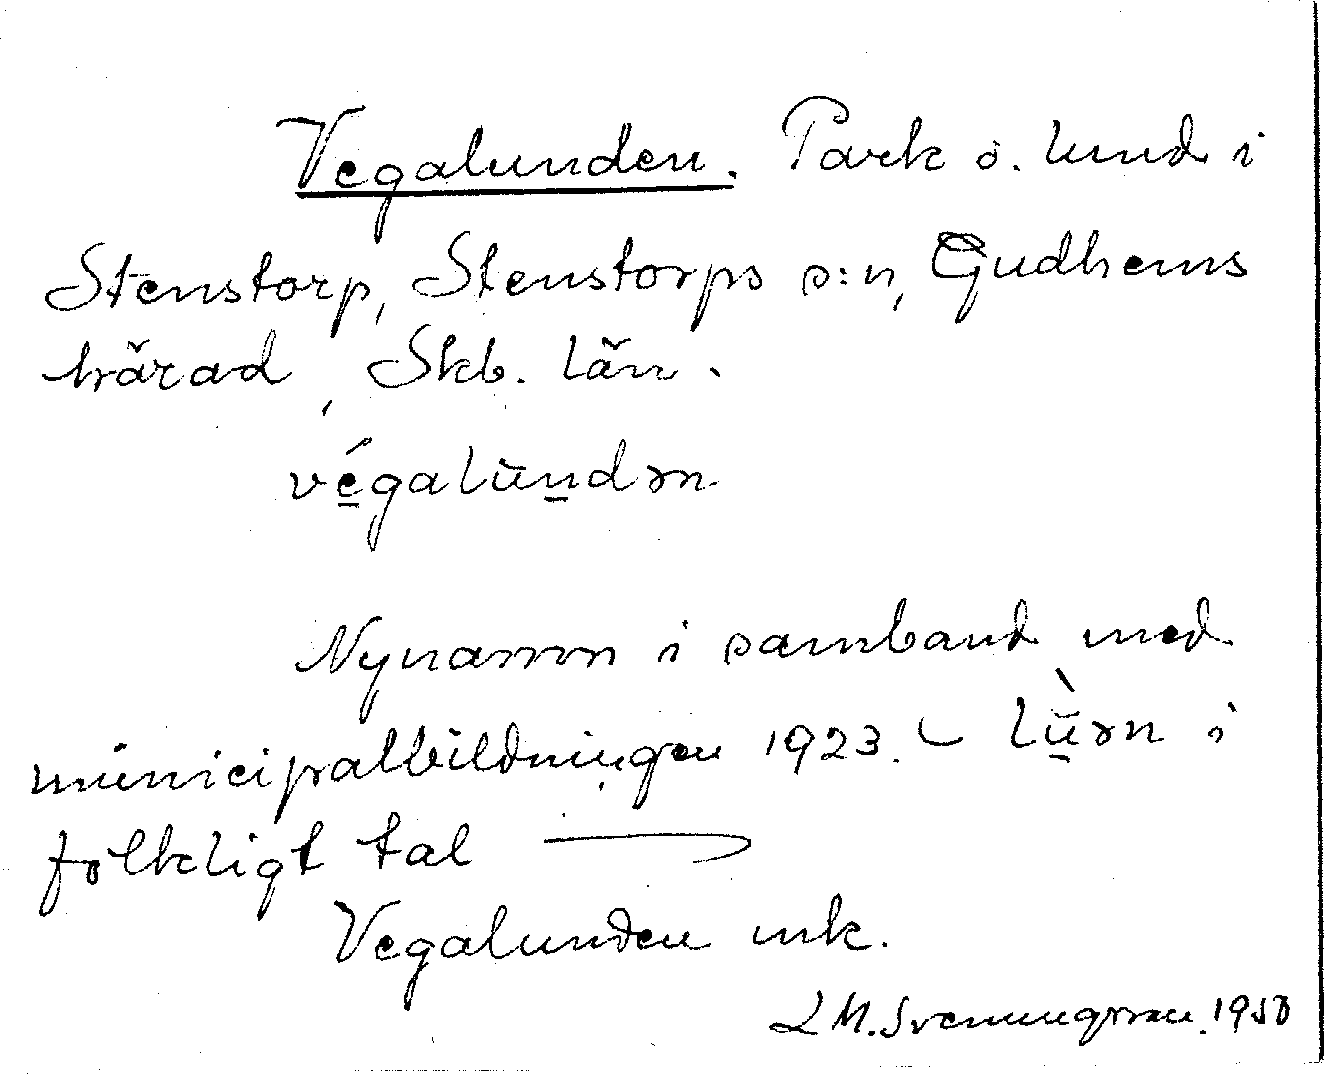 Vegalunden. Park o. lund i
Stenstorp, Stenstorps s:n, Gudhems
härad, Skb. län.
végalūndən
Nynamn i samband med
municipalbildningen 1923. – lùən i
folkligt tal
Vegalunden mk.
L M. Svenungsson. 1950